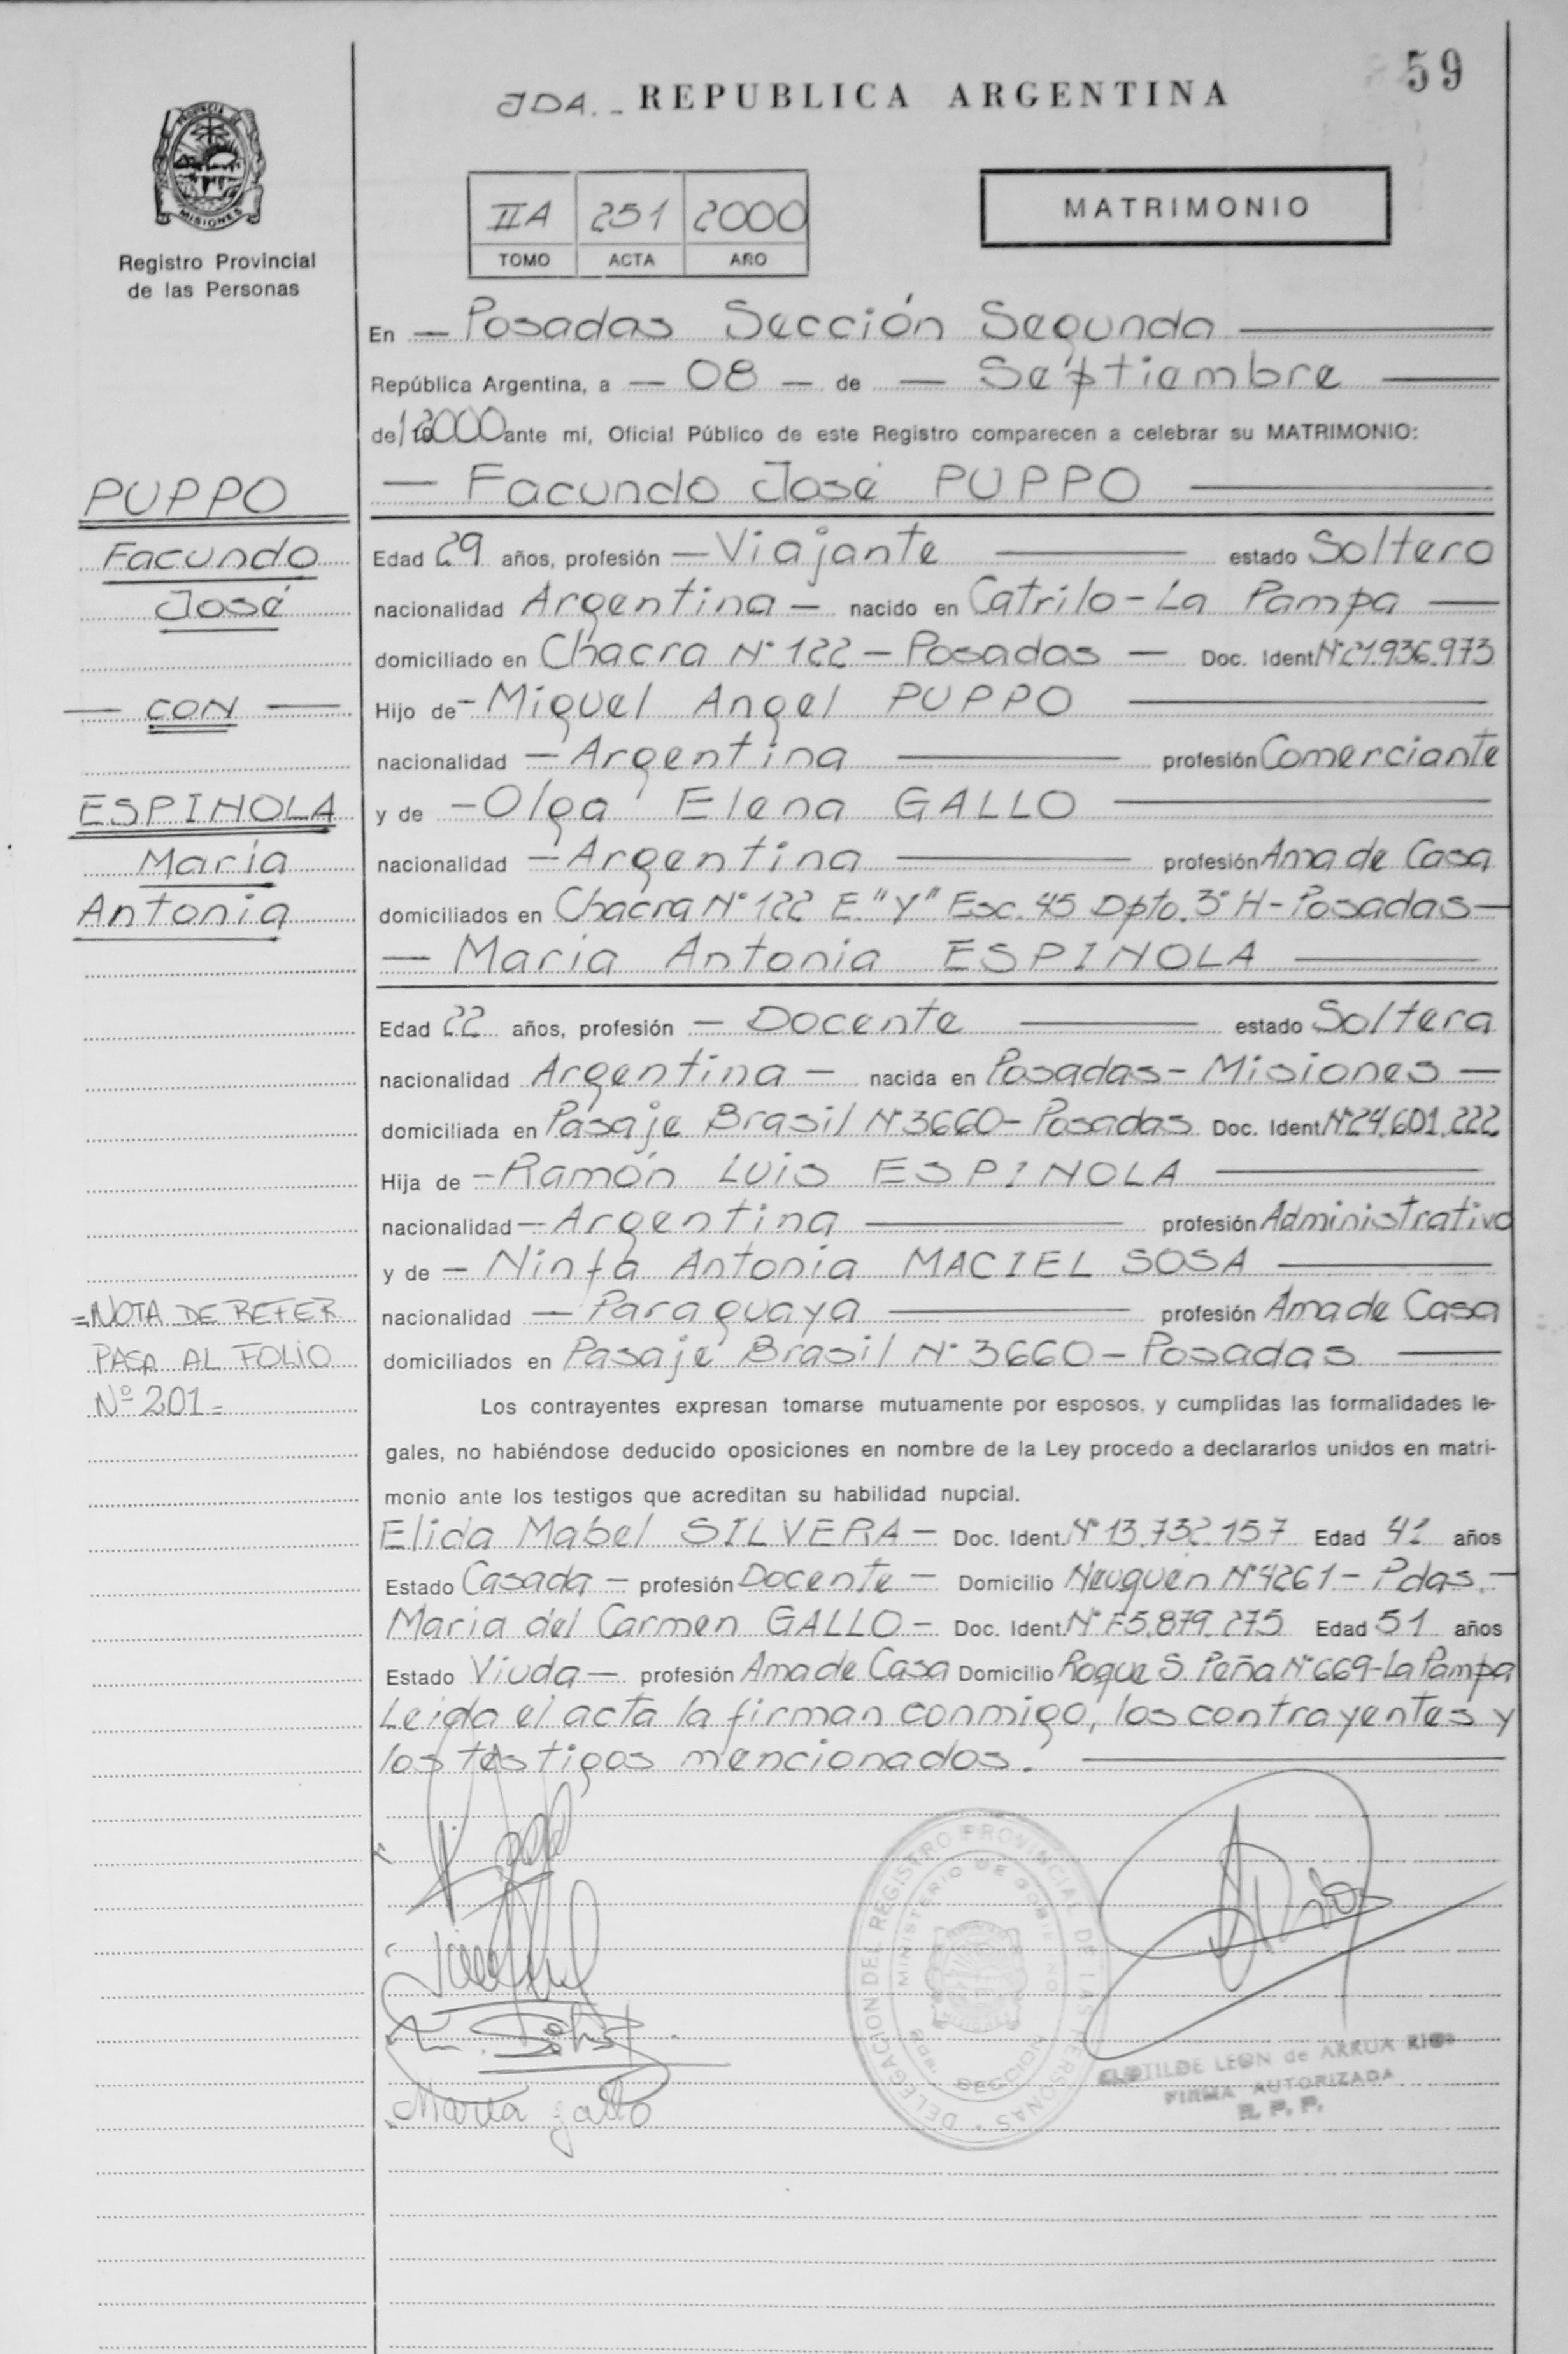 59
JDA.- REPUBLICA ARGENTINA
PROVINCIA DE
MISIONES
Registro Provincial
de las Personas
IIA 251 2000
TOMO ACTA AÑO
MATRIMONIO
En — Posadas Sección Segunda —
República Argentina, a — 08 — de — Septiembre —
de 2000 ante mí, Oficial Público de este Registro comparecen a celebrar su MATRIMONIO:
PUPPO
Facundo
José
— CON —
ESPINOLA
María
Antonia
=NOTA DE REFER
PASA AL FOLIO
Nº 201=
— Facundo José PUPPO —
Edad 29 años, profesión — Viajante — estado Soltero
nacionalidad Argentina — nacido en Catrilo - La Pampa —
domiciliado en Chacra Nº 122 — Posadas — Doc. Ident Nº 21.936.973
Hijo de - Miguel Angel PUPPO —
nacionalidad — Argentina — profesión Comerciante
y de — Olga Elena GALLO —
nacionalidad — Argentina — profesión Ama de Casa
domiciliados en Chacra Nº 122 E. "Y" Esc. 45 Dpto. 3º H - Posadas —
— María Antonia ESPINOLA —
Edad 22 años, profesión — Docente — estado Soltera
nacionalidad Argentina — nacida en Posadas - Misiones —
domiciliada en Pasaje Brasil Nº 3660 - Posadas Doc. Ident Nº 24.601.222
Hija de - Ramón Luis ESPINOLA —
nacionalidad — Argentina — profesión Administrativo
y de — Ninfa Antonia MACIEL SOSA —
nacionalidad — Paraguaya — profesión Ama de Casa
domiciliados en Pasaje Brasil Nº 3660 — Posadas —
Los contrayentes expresan tomarse mutuamente por esposos, y cumplidas las formalidades le-
gales, no habiéndose deducido oposiciones en nombre de la Ley procedo a declararlos unidos en matri-
monio ante los testigos que acreditan su habilidad nupcial.
Elida Mabel SILVERA — Doc. Ident. Nº 13.732.157 Edad 41 años
Estado Casada — profesión Docente — Domicilio Neuquén Nº 4261 — Pdas. —
Maria del Carmen GALLO — Doc. Ident. Nº F5.879.275 Edad 51 años
Estado Viuda — profesión Ama de Casa Domicilio Roque S. Peña Nº 669 - La Pampa
Leida el acta la firman conmigo, los contrayentes y
los testigos mencionados. —
DELEGACION DEL REGISTRO PROVINCIAL DE LAS PERSONAS
MINISTERIO DE GOBIERNO
SECCION
Maria Gallo
CLOTILDE LEON de ARRUA RIOS
FIRMA AUTORIZADA
R. P. P.